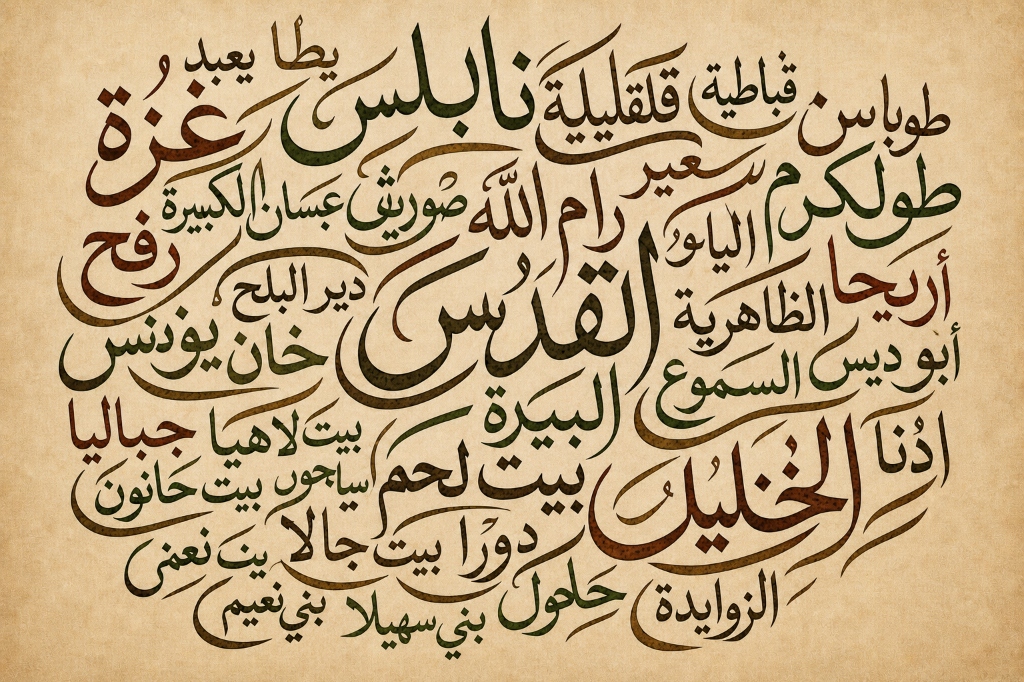 يطا
يعبد
نابلس
قلقيلية
قباطية
طوباس
غزة
سعير
طولكرم
رام الله
صوريف
عبسان الكبيرة
رفح
اليامون
أريحا
القدس
الظاهرية
دير البلح
خان يونس
أبو ديس
السموع
البيرة
اذنا
الخليل
بيت لاهيا
جباليا
بيت لحم
بيت حانون
دورا
بيت جالا
حلحول
الزوايدة
بني سهيلا
بني نعيم